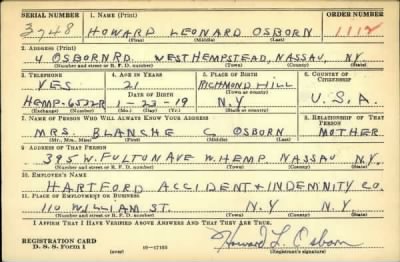 SERIAL NUMBER 1. NAME (Print) ORDER NUMBER
3748 HOWARD LEONARD OSBORN 1112
(First) (Middle) (Last)
2. ADDRESS (Print)
4 OSBORN RD. WEST HEMPSTEAD, NASSAU, NY
(Number and street or R. F. D. number) (Town) (County) (State)
3. TELEPHONE 4. AGE IN YEARS 5. PLACE OF BIRTH 6. COUNTRY OF CITIZENSHIP
YES 21 RICHMOND HILL
(Town or county)
DATE OF BIRTH
HEMP-6572R 1-23-19 N.Y U.S.A.
(Exchange) (Number) (Mo.) (Day) (Yr.) (State or country)
7. NAME OF PERSON WHO WILL ALWAYS KNOW YOUR ADDRESS 8. RELATIONSHIP OF THAT PERSON
MRS. BLANCHE C OSBORN MOTHER
(Mr., Mrs., Miss) (First) (Middle) (Last)
9. ADDRESS OF THAT PERSON
395 W. FULTON AVE W. HEMP. NASSAU N.Y.
(Number and street or R. F. D. number) (Town) (County) (State)
10. EMPLOYER'S NAME
HARTFORD ACCIDENT & INDEMNITY CO.
11. PLACE OF EMPLOYMENT OR BUSINESS
110 WILLIAM ST. N.Y N.Y.
(Number and street or R. F. D. number) (Town) (County) (State)
I AFFIRM THAT I HAVE VERIFIED ABOVE ANSWERS AND THAT THEY ARE TRUE.
REGISTRATION CARD
D. S. S. Form 1 (over) 16—17105 Howard L. Osborn
(Registrant's signature)